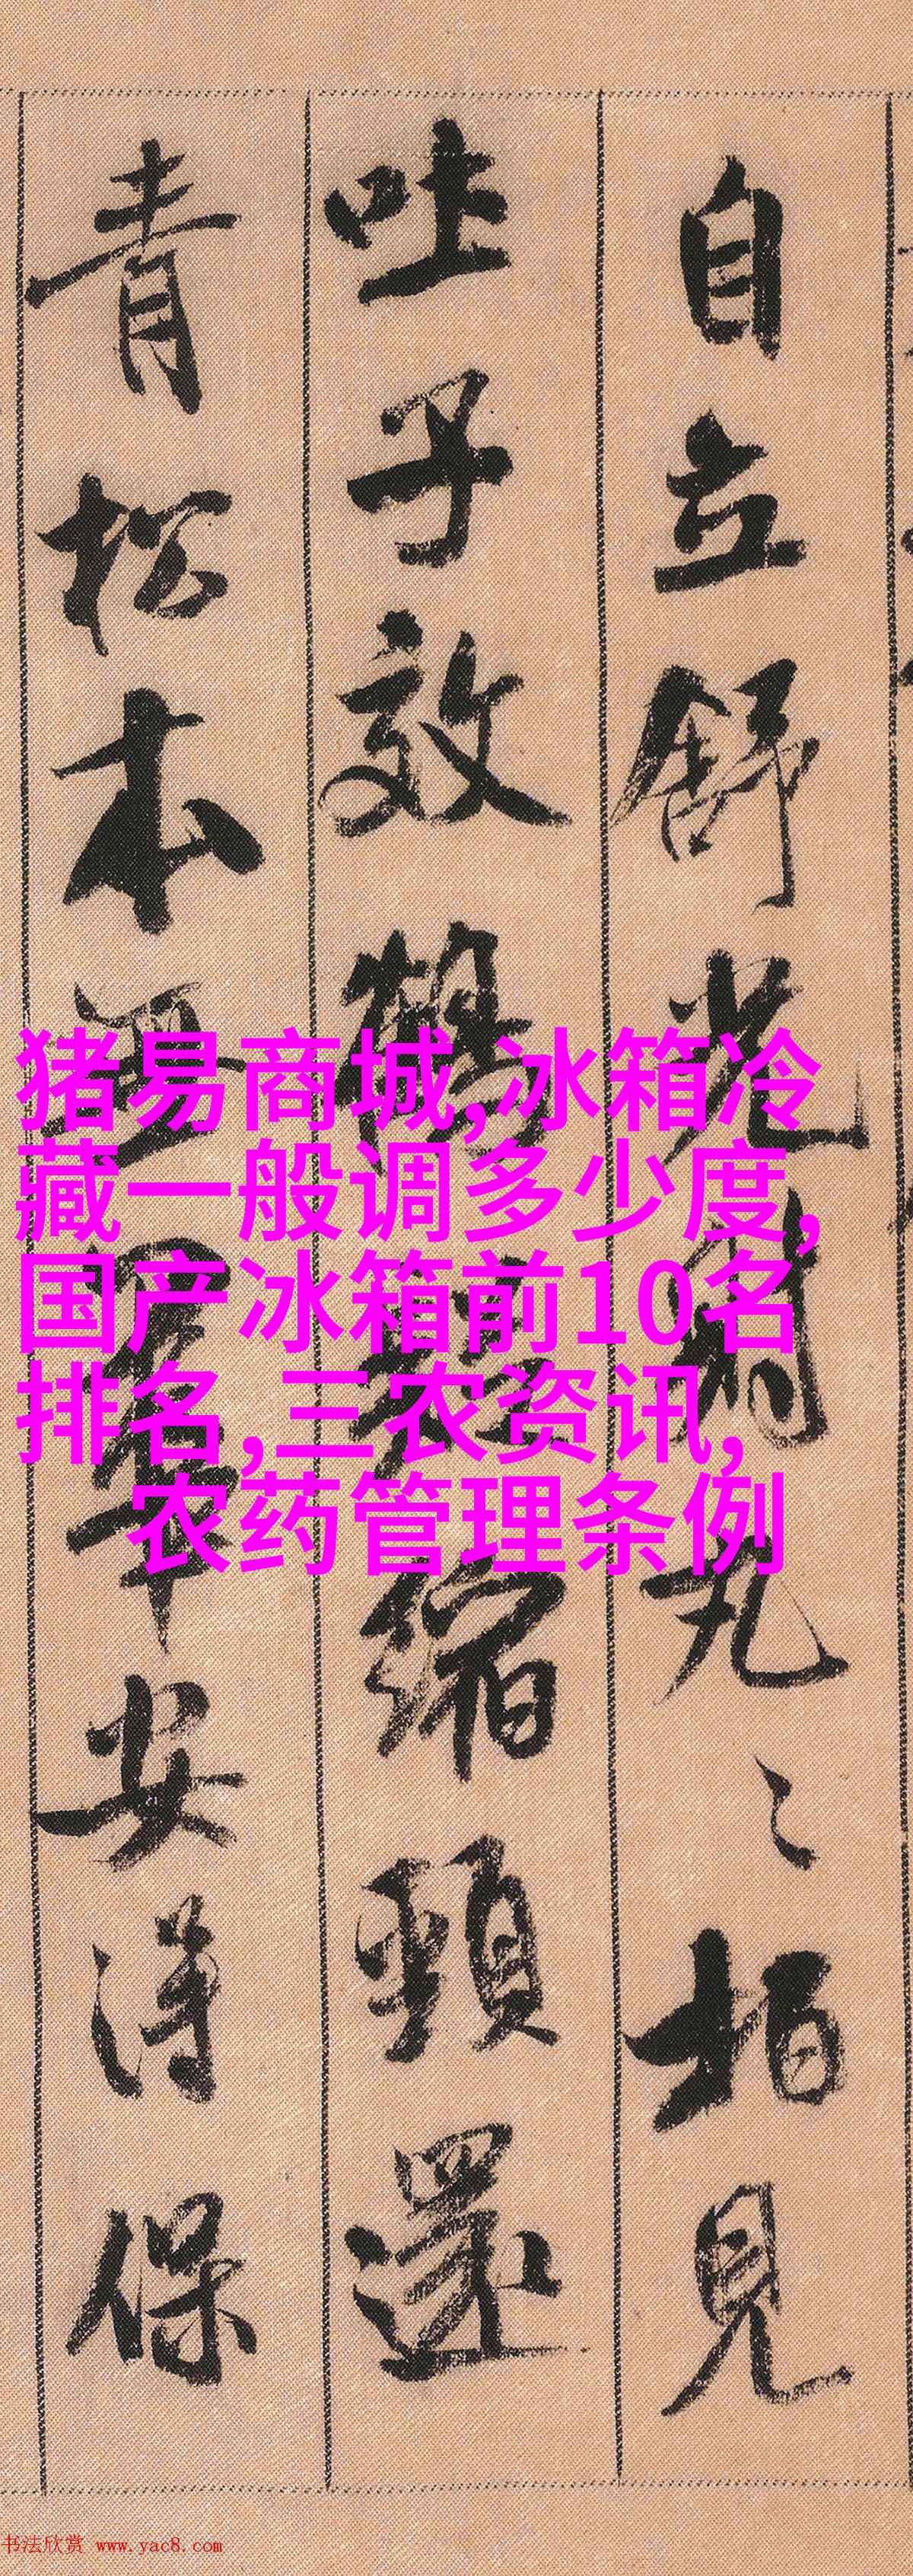 自立舒光射丸〻柏見
吐子效鶴疑縮頸還
青松本無華安得保
猪易商城,冰箱冷
藏一般调多少度,
国产冰箱前10名
排名,三农资讯,
农药管理条例
书法欣赏 www.yac8.com